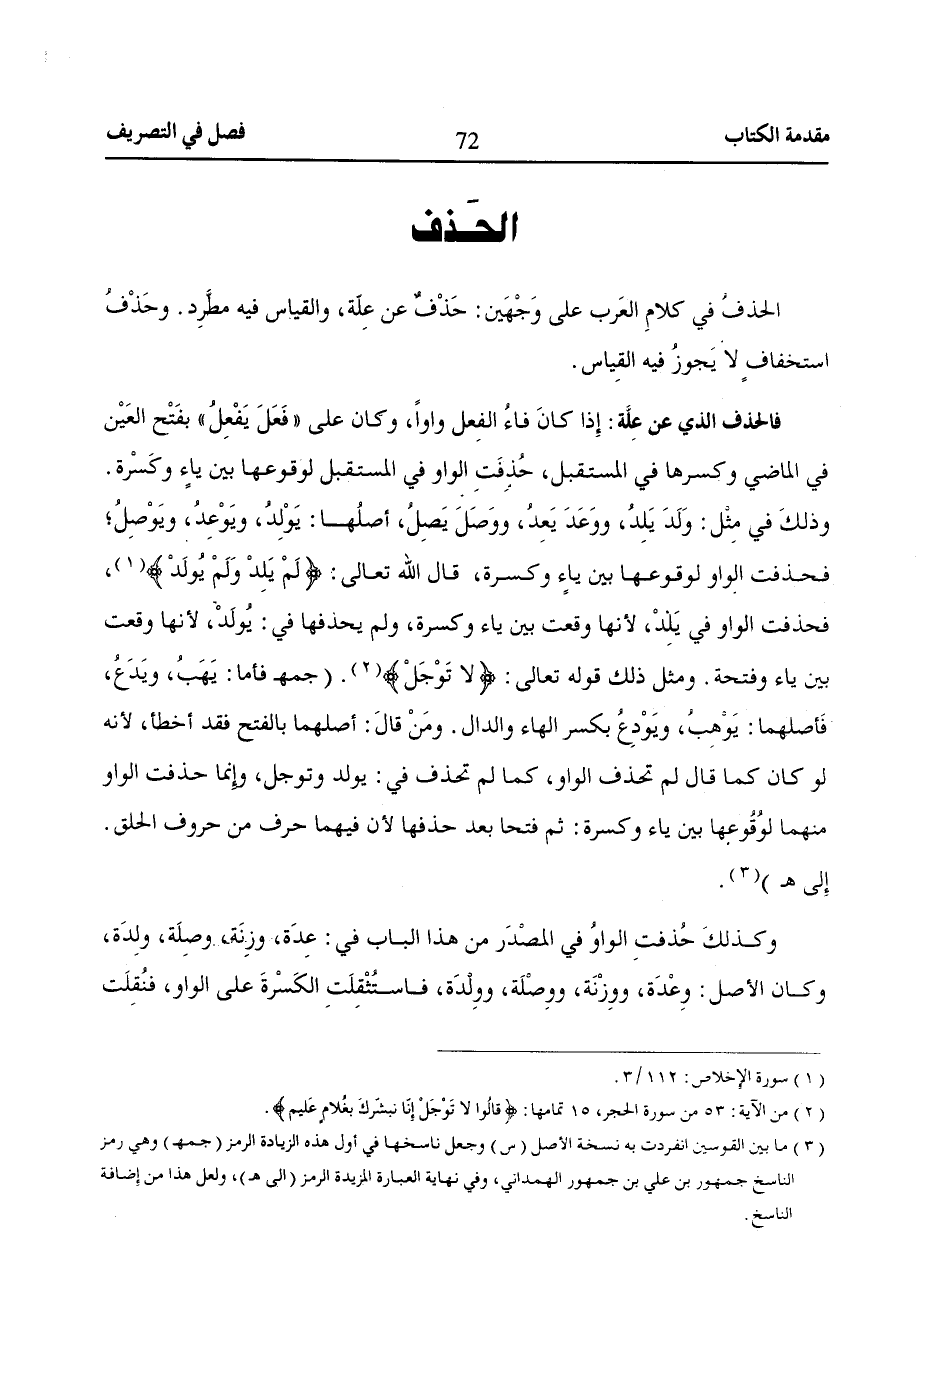 مقدمة الكتاب 72 فصل في التصريف
الحَذف
الحذفُ في كلامِ العَرب على وَجْهَين: حَذْفٌ عن عِلّة، والقياس فيه مطَّرِد. وحَذْفُ
استخفافٍ لا يَجوزُ فيه القِياس.
فالحذف الذي عن عِلَّة: إِذا كانَ فاءُ الفعل واواً، وكان على «فَعَلَ يَفْعِلُ» بفَتْح العَيْن
في الماضي وكسرها في المستقبل، حُذِفَت الواو في المستقبل لوقوعها بين ياءٍ وكَسْرة.
وذلكَ في مثْل: وَلَدَ يَلِدُ، ووَعَدَ يَعِدُ، ووَصَلَ يَصِلُ، أصلُهــا: يَوْلِدُ، ويَوْعِدُ، ويَوْصِلُ؛
فحذفت الواو لوقوعها بين ياءٍ وكسرة، قال الله تعالى: ﴿لَمْ يَلِدْ وَلَمْ يُولَدْ﴾(١)،
فحذفت الواو في يَلِدْ، لأنها وقعت بين ياء وكسرة، ولم يحذفها في: يُولَدْ، لأنها وقعت
بين ياء وفتحة. ومثل ذلك قوله تعالى: ﴿لا تَوْجَلْ﴾(٢). (جمهـ فأما: يَهَبُ، ويَدَعُ،
فَأصلهما: يَوْهِبُ، ويَوْدِعُ بكسر الهاء والدال. ومَنْ قالَ: أصلهما بالفتح فقد أخطأ، لأنه
لو كان كما قال لم تحذف الواو، كما لم تحذف في: يولد وتوجل، وإنما حذفت الواو
منهما لوُقُوعِها بين ياء وكسرة: ثم فتحا بعد حذفها لأن فيهما حرف من حروف الحلق.
إِلى هـ )(٣).
وكـذلكَ حُذفت الواوُ في المصْدَر من هذا الباب في: عِدَة، وزِنَة، وصِلَة، ولِدَة،
وكـان الأصل: وِعْدَة، ووِزْنَة، ووِصْلَة، ووِلْدَة، فـاسـتُثْقِلَتِ الكَسْرَةَ على الواو، فنُقِلَت
(١) سورة الإِخلاص: ٣/١١٢.
(٢) من الآية: ٥٣ من سورة الحجر، ١٥ تمامها: ﴿قالُوا لا تَوْجَلْ إِنّا نبشرك بغُلامٍ عَليم﴾.
(٣) ما بين القوسين انفردت به نسخة الأصل (س) وجعل ناسخها في أول هذه الزيادة الرمز (جمهـ) وهي رمز
الناسخ جمهور بن علي بن جمهور الهمداني، وفي نهاية العبارة المزيدة الرمز (الى هـ)، ولعل هذا من إِضافة
الناسخ.